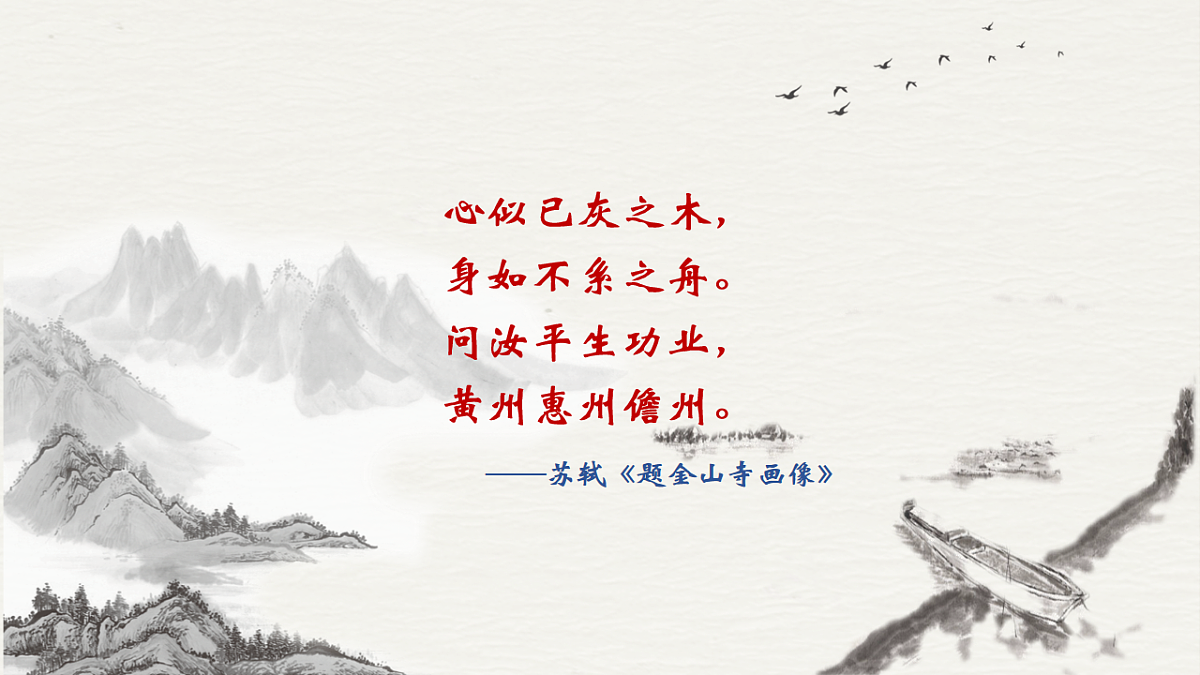 心似已灰之木，
身如不系之舟。
问汝平生功业，
黄州惠州儋州。
——苏轼《题金山寺画像》